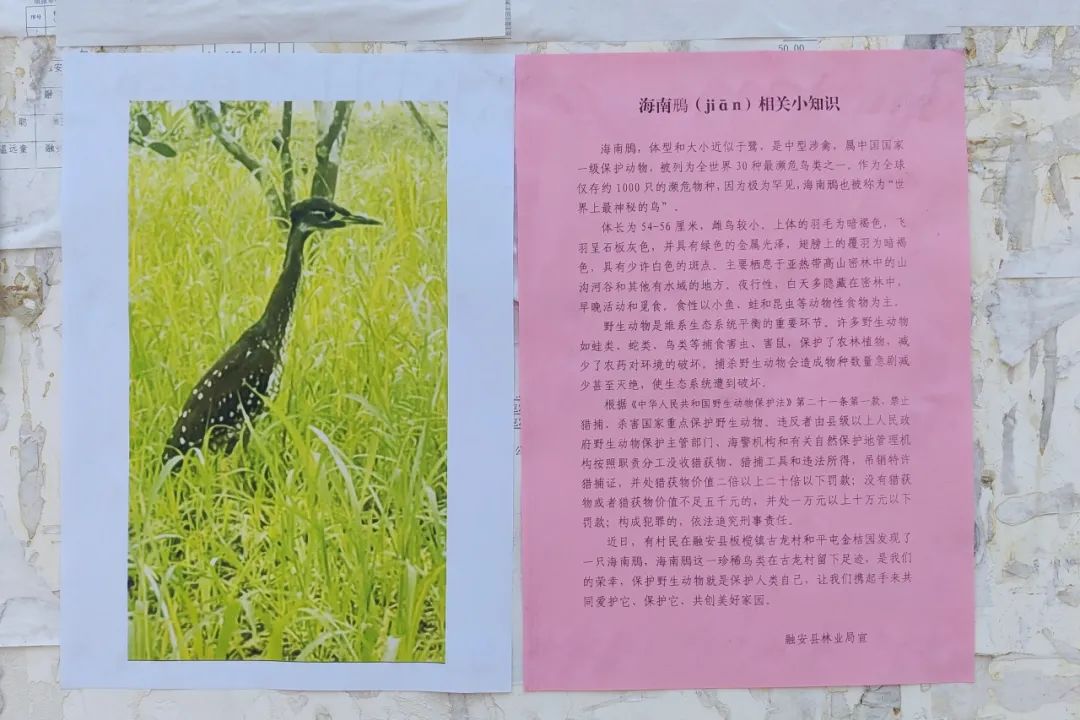 序号
50.00
融
聪
温远童
融
海南鳽（jiān）相关小知识
海南鳽，体型和大小近似于鹭，是中型涉禽，属中国国家
一级保护动物，被列为全世界 30 种最濒危鸟类之一。作为全球
仅存约 1000 只的濒危物种，因为极为罕见，海南鳽也被称为“世
界上最神秘的鸟”。
体长为 54-56 厘米，雌鸟较小。上体的羽毛为暗褐色，飞
羽呈石板灰色，并具有绿色的金属光泽，翅膀上的覆羽为暗褐
色，具有少许白色的斑点。主要栖息于亚热带高山密林中的山
沟河谷和其他有水域的地方。夜行性，白天多隐藏在密林中，
早晚活动和觅食。食性以小鱼、蛙和昆虫等动物性食物为主。
野生动物是维系生态系统平衡的重要环节。许多野生动物
如蛙类、蛇类、鸟类等捕食害虫、害鼠，保护了农林植物，减
少了农药对环境的破坏。捕杀野生动物会造成物种数量急剧减
少甚至灭绝，使生态系统遭到破坏。
根据《中华人民共和国野生动物保护法》第二十一条第一款，禁止
猎捕、杀害国家重点保护野生动物。违反者由县级以上人民政
府野生动物保护主管部门、海警机构和有关自然保护地管理机
构按照职责分工没收猎获物、猎捕工具和违法所得，吊销特许
猎捕证，并处猎获物价值二倍以上二十倍以下罚款；没有猎获
物或者猎获物价值不足五千元的，并处一万元以上十万元以下
罚款；构成犯罪的，依法追究刑事责任。
近日，有村民在融安县板榄镇古龙村和平屯金桔园发现了
一只海南鳽，海南鳽这一珍稀鸟类在古龙村留下足迹，是我们
的荣幸，保护野生动物就是保护人类自己，让我们携起手来共
同爱护它、保护它、共创美好家园。
融安县林业局宣